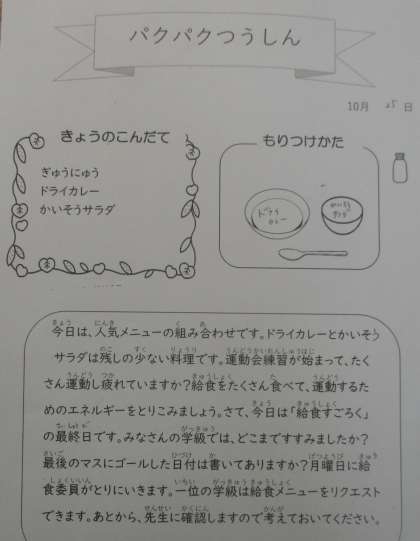 パクパクつうしん
10月 25 日
きょうのこんだて
ぎゅうにゅう
ドライカレー
かいそうサラダ
もりつけかた
ドライ
カレー
かいそう
サラダ
今日は、人気メニューの組み合わせです。ドライカレーとかいそう
サラダは残しの少ない料理です。運動会練習が始まって、たく
さん運動し疲れていますか？給食をたくさん食べて、運動するた
めのエネルギーをとりこみましょう。さて、今日は「給食すごろく」
の最終日です。みなさんの学級では、どこまですすみましたか？
最後のマスにゴールした日付は書いてありますか？月曜日に給
食委員がとりにいきます。一位の学級は給食メニューをリクエスト
できます。あとから、先生に確認しますので考えておいてください。